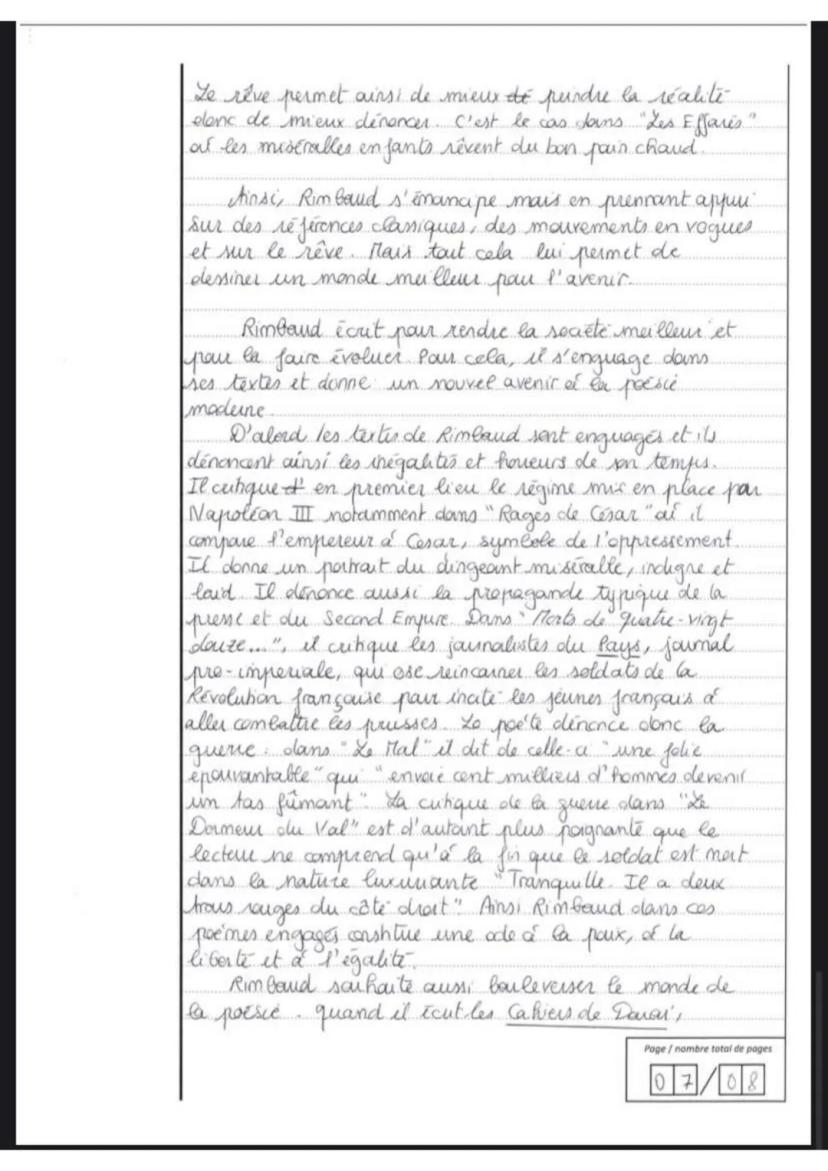 Le rêve permet ainsi de mieux dé peindre la réalité
donc de mieux dénoncer. C'est le cas dans "Les Effarés"
où les misérables enfants rêvent du bon pain chaud.
Ainsi, Rimbaud s'émancipe mais en prennant appui
sur des références classiques, des mouvements en vogues
et sur le rêve. Mais tout cela lui permet de
dessiner un monde meilleur pour l'avenir.
Rimbaud écrit pour rendre la société meilleur et
pour la faire évoluer. Pour cela, il s'enguage dans
ses textes et donne un nouvel avenir à la poésie
moderne.
D'abord les textes de Rimbaud sont enguagés et ils
dénoncent ainsi les inégalités et horreurs de son temps.
Il critique d' en premier lieu le régime mis en place par
Napoléon III notamment dans "Rages de César" où il
compare l'empereur à Cesar, symbole de l'oppressement.
Il donne un portrait du dirigeant misérable, indigne et
laid. Il dénonce aussi la propagande typique de la
presse et du Second Empire. Dans "Morts de Quatre-vingt
douze...", il critique les journalistes du Pays, journal
pro-imperiale, qui ose reincarner les soldats de la
Révolution française pour incité les jeunes français à
aller combattre les prusses. Le poète dénonce donc la
guerre : dans "Le Mal" il dit de celle-ci "une folie
épouvantable" qui "envoie cent milliers d'hommes devenir
un tas fûmant". La critique de la guerre dans "Le
Dormeur du Val" est d'autant plus poignante que le
lecteur ne comprend qu'à la fin que le soldat est mort
dans la nature luxuriante "Tranquille. Il a deux
trous rouges du côté droit". Ainsi Rimbaud dans ces
poèmes engagés constitue une ode à la paix, à la
liberté et à l'égalité.
Rimbaud souhaite aussi bouleverser le monde de
la poésie. quand il écrit les Cahiers de Douai,
Page / nombre total de pages
07/08